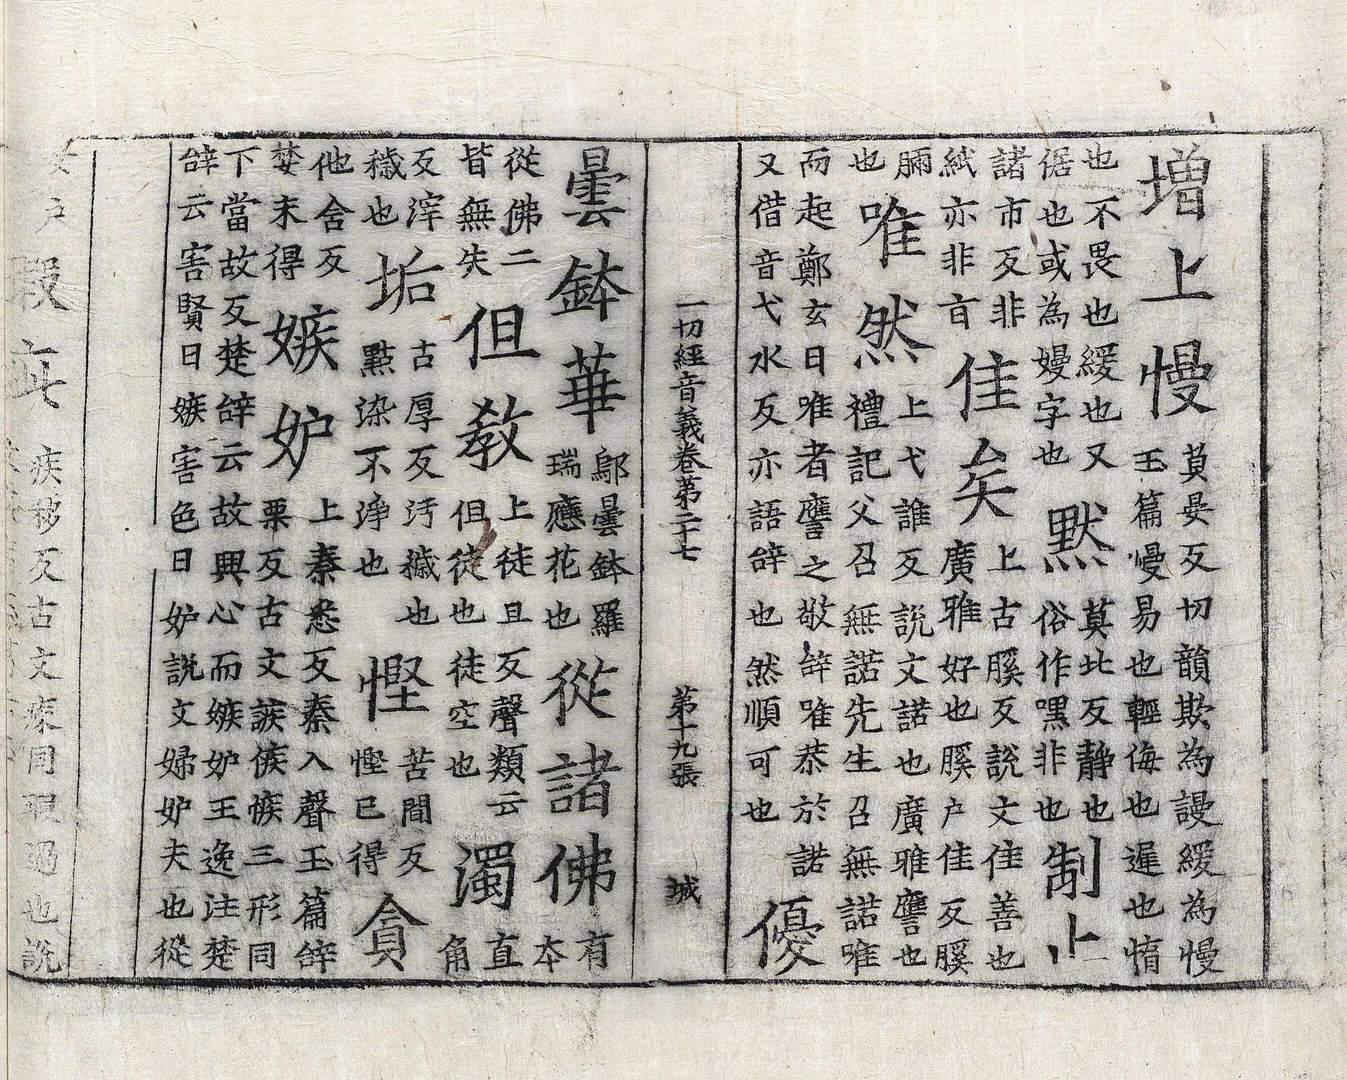 增上慢莫晏反切韻欺為謾緩為慢
玉篇慢易也輕侮也遲也惰
也不畏也緩也又
倨也或為嫚字也
默莫北反静也
俗作嘿非也
制止
諸市反非
亦非
佳矣上古膎反說文佳善也
廣雅好也膎户佳反膎
也
唯然上弋誰反說文諾也廣雅譍也
禮記父召無諾先生召無諾唯
而起鄭玄曰唯者譍之敬辝唯恭於諾
又借音弋水反亦語辝也然順可也
優
一切經音義卷第二十七 第十九張 城
曇鉢華鄔曇鉢羅
瑞應花也
從諸佛有
本
從佛二
皆無失
但教上徒且反聲類云
但徒也徒空也
濁直
角
反滓
穢也
垢古厚反汙穢也
點染不淨也
慳苦間反
慳已得
貪
他含反
婪未得
嫉妒上秦悉反秦入聲玉篇辝
栗反古文誺㑵愱三形同
下當故反楚辝云故興心而嫉妒王逸注楚
辝云害賢曰嫉害色曰妒說文婦妒夫也從
女户
瑕疵
疾移反古文同瑕過也說